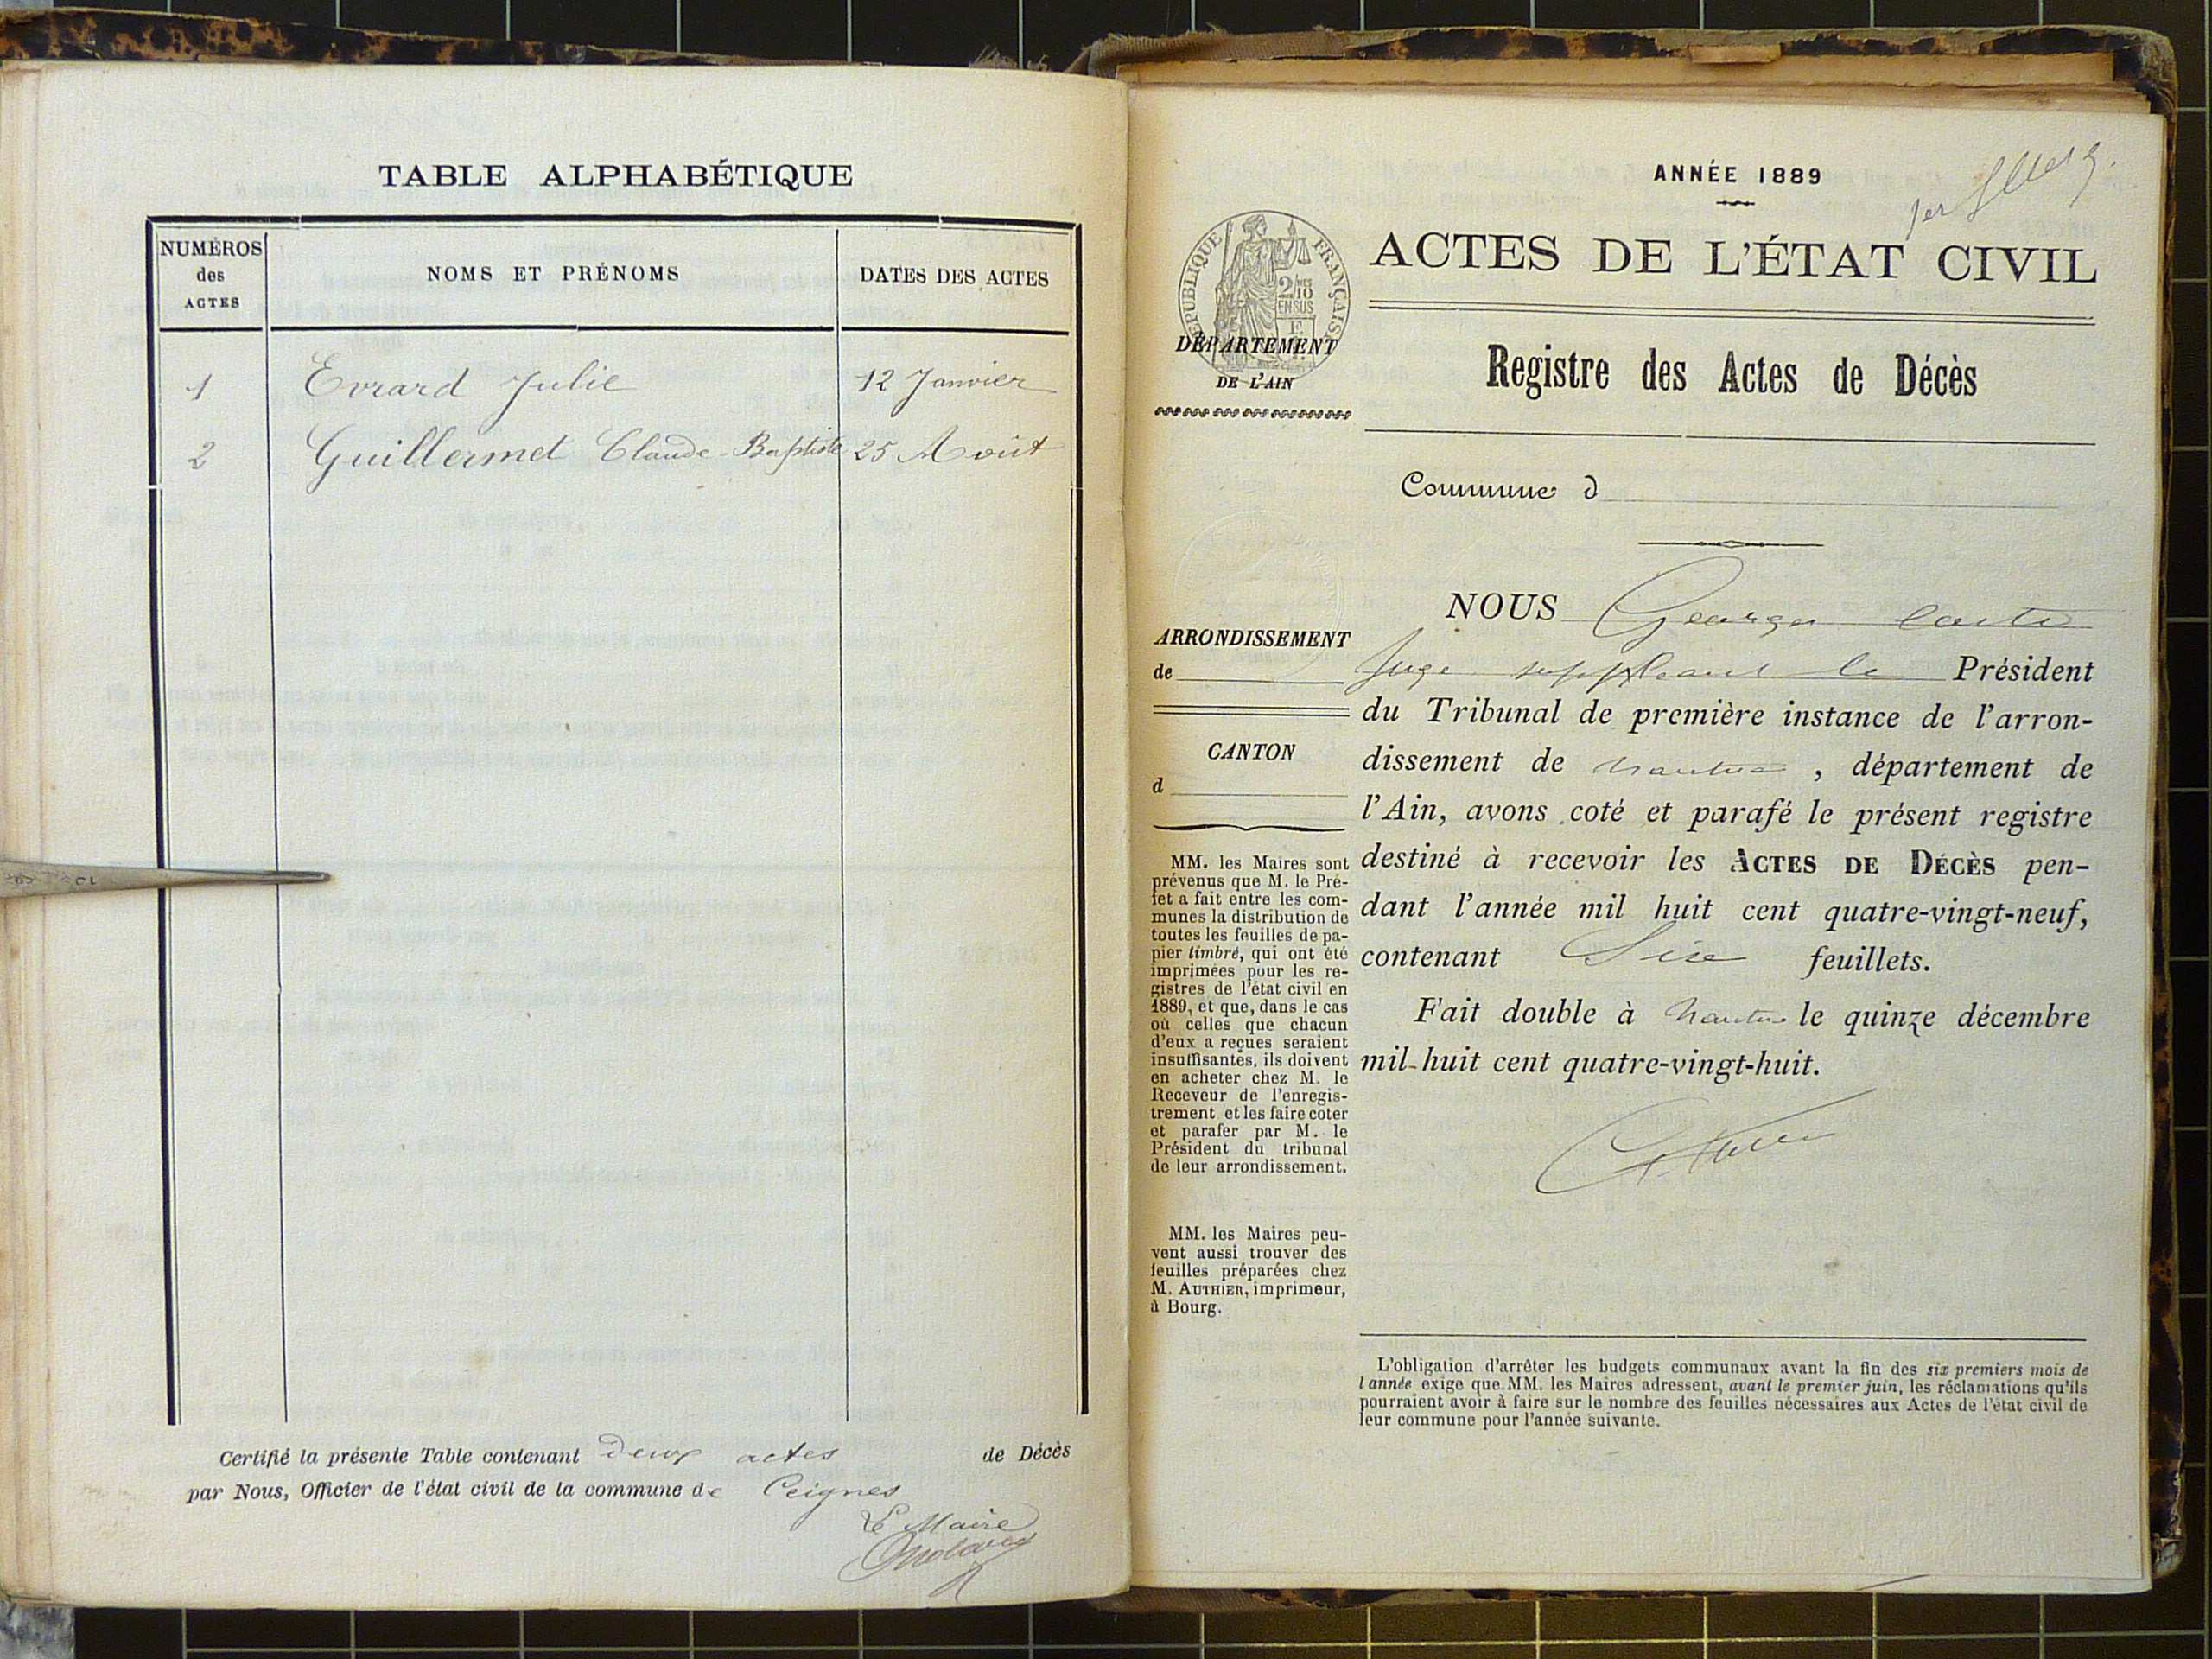 TABLE ALPHABÉTIQUE
NUMÉROS
des
ACTES
NOMS ET PRÉNOMS
DATES DES ACTES
1 Evrard Julie 12 Janvier
2 Guillermet Claude-Baptiste 25 Août
Certifié la présente Table contenant deux actes de Décès
par Nous, Officier de l'état civil de la commune de Ceignes
Le Maire
ANNÉE 1889
1er
RÉPUBLIQUE FRANÇAISE
DÉPARTEMENT
DE L'AIN
ACTES DE L'ÉTAT CIVIL
Registre des Actes de Décès
Commune d
ARRONDISSEMENT
de
CANTON
d
MM. les Maires sont
prévenus que M. le Pré-
fet a fait entre les com-
munes la distribution de
toutes les feuilles de pa-
pier timbré, qui ont été
imprimées pour les re-
gistres de l'état civil en
1889, et que, dans le cas
où celles que chacun
d'eux a reçues seraient
insuffisantes, ils doivent
en acheter chez M. le
Receveur de l'enregis-
trement et les faire coter
et parafer par M. le
Président du tribunal
de leur arrondissement.
MM. les Maires peu-
vent aussi trouver des
feuilles préparées chez
M. AUTHIER, imprimeur,
à Bourg.
NOUS Georges
Juge suppléant le Président
du Tribunal de première instance de l'arron-
dissement de Nantua, département de
l'Ain, avons coté et parafé le présent registre
destiné à recevoir les ACTES DE DÉCÈS pen-
dant l'année mil huit cent quatre-vingt-neuf,
contenant Six feuillets.
Fait double à Nantua le quinze décembre
mil-huit cent quatre-vingt-huit.
L'obligation d'arrêter les budgets communaux avant la fin des six premiers mois de
l'année exige que MM. les Maires adressent, avant le premier juin, les réclamations qu'ils
pourraient avoir à faire sur le nombre des feuilles nécessaires aux Actes de l'état civil de
leur commune pour l'année suivante.